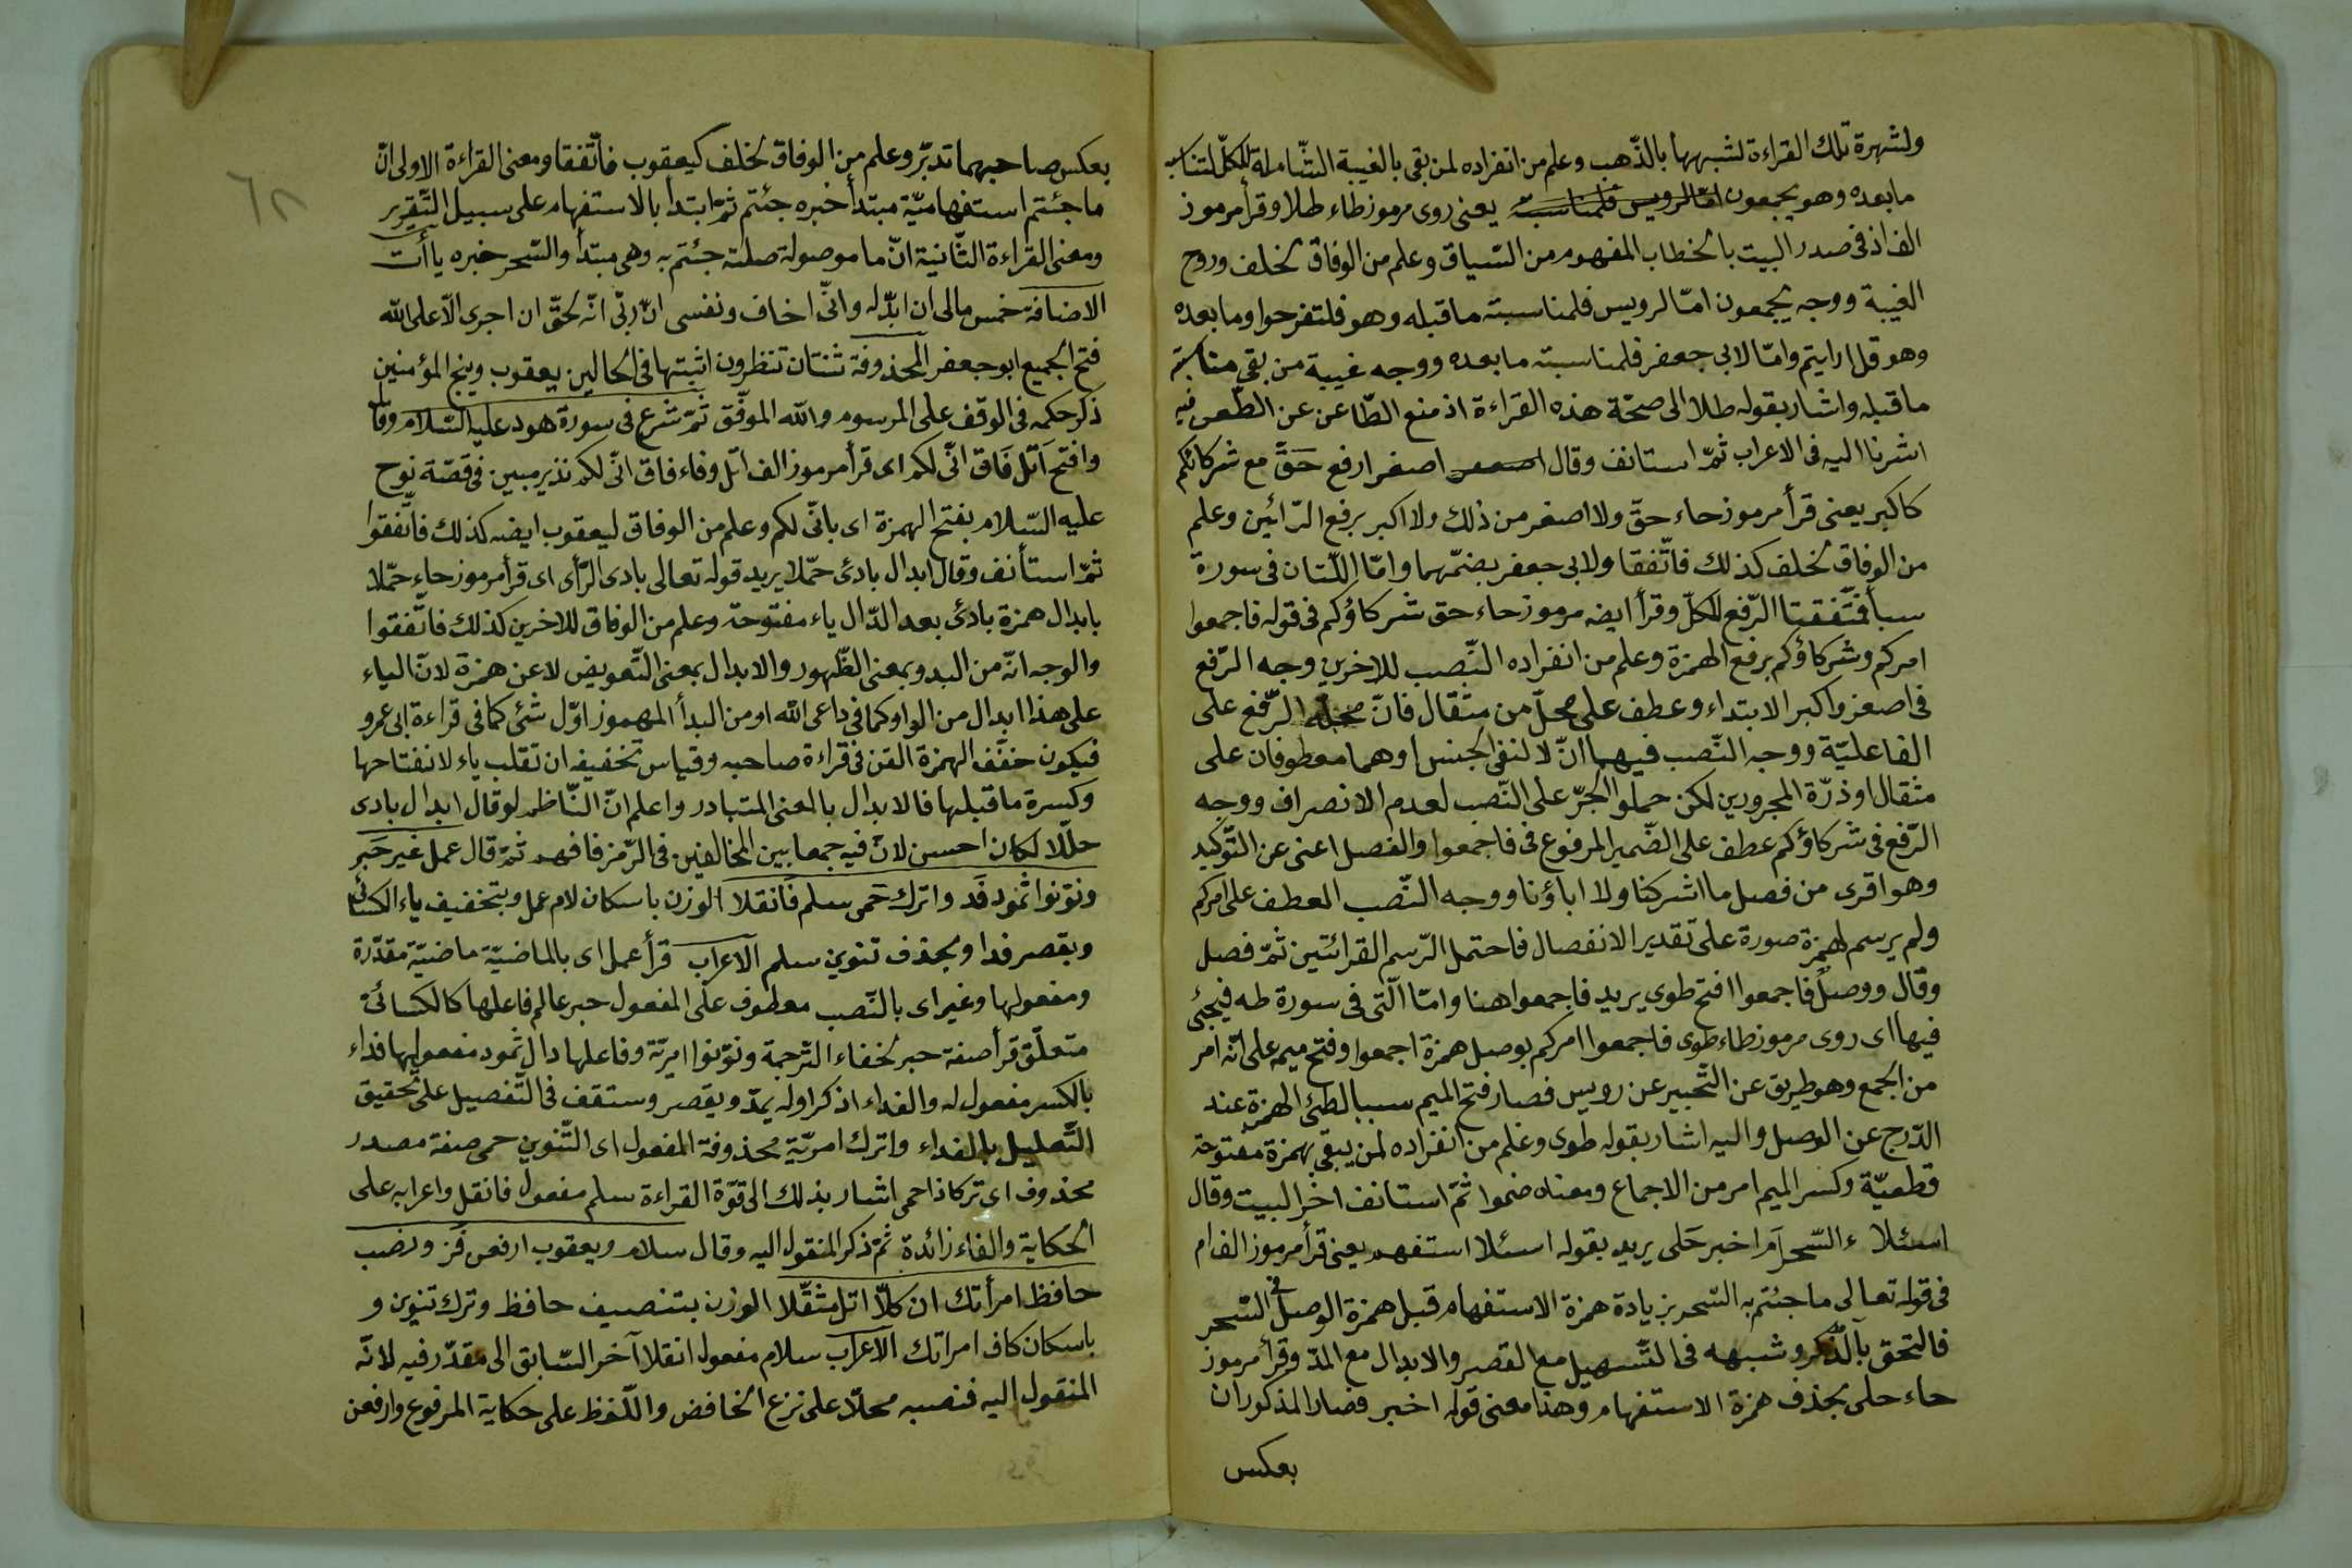 ولشهرة تلك القراءة لشبهها بالذّهب وعلم من انفراده لمن بقى بالغيبة الشّاملة للكلّ لتناسب
ما بعده وهو يجمعون امّا لرويس فلمناسبته يعنى روى مرموز طاء طلا وقرأ مرموز
الف اذ فى صدر البيت بالخطاب المفهوم من السّياق وعلم من الوفاق لخلف وروح
الغيبة ووجه يجمعون امّا لرويس فلمناسبته ما قبله وهو فلتفرحوا وما بعده
وهو قل ارايتم وامّا لابى جعفر فلمناسبته ما بعده ووجه غيبة من بقى مناسبة
ما قبله واشار بقوله طلا الى صحّة هذه القراءة اذ منع الطّاعن عن الطّعن فيه
اشرنا اليه فى الاعراب ثمّ استانف وقال اصغر ارفع حَقَّ مع شركائكم
كاكبر يعنى قرأ مرموز حاء حقّ ولا اصغر من ذلك ولا اكبر برفع الرّائين وعلم
من الوفاق لخلف كذلك فاتّفقا ولابى جعفر بضمّهما وامّا اللّتان فى سورة
سبأ فتّفقتا الرّفع للكلّ وقرأ ايضه مرموز حاء حق شركاؤكم فى قوله فاجمعوا
امركم وشركاؤكم برفع الهمزة وعلم من انفراده النّصب للاخرين وجه الرّفع
فى اصغر واكبر الابتداء وعطف على محلّ من مثقال فانّ محلّه الرّفع على
الفاعليّة ووجه النّصب فيهما انّ لا لنفى الجنس او هما معطوفان على
مثقال او ذرّة المجرورين لكن حملوا الجرّ على النّصب لعدم الانصراف ووجه
الرّفع فى شركاؤكم عطف على الضّمير المرفوع فى فاجمعوا والفصل اغنى عن التّوكيد
وهو اقرى من فصل ما اشركنا ولا اباؤنا ووجه النّصب العطف على امركم
ولم يرسم لهمزة صورة على تقدير الانفصال فاحتمل الرّسم القرائتين ثمّ فصل
وقال ووصل فاجمعوا افتح طوى يريد فاجمعوا هنا وامّا الّتى فى سورة طه فيجئ
فيها اى روى مرموز طاء طوى فاجمعوا امركم بوصل همزة اجمعوا وفتح ميمه على انّه امر
من الجمع وهو طريق عن التّحبير عن رويس فصار فتح الميم سببا لطىّ الهمزة عند
الدّرج عن الوصل واليه اشار بقوله طوى وعلم من انفراده لمن يبقى بهمزة مفتوحة
قطعيّة وكسر الميم امر من الاجماع ومعناه ضموا ثمّ استانف اخر البيت وقال
اسئلا ء السّحر اَم اخبر حَلى يريد بقوله اسئلا استفهم يعنى قرأ مرموز الف ام
فى قوله تعالى ما جئتم به السّحر بزيادة همزة الاستفهام قبل همزة الوصل فى السّحر
فالتحق بآلذّكر وشبهه فى التّسهيل مع القصر والابدال مع المدّ وقرأ مرموز
حاء حلى بحذف همزة الاستفهام وهذا معنى قوله اخبر فصار المذكوران
بعكس
٦٨
بعكس صاحبهما تدبّر وعلم من الوفاق لخلف كيعقوب فاتّفقا ومعنى القراءة الاولى انّ
ما جئتم استفهاميّة مبتدأ خبره جئتم ثمّ ابتدا بالاستفهام على سبيل التّقرير
ومعنى القراءة الثّانية انّ ما موصولة صلته جئتم به وهى مبتدأ والسّحر خبره ياأت
الاضافة خمس مالى ان ابدّله وانّى اخاف ونفسى انّ ربّى انّه لحقّ ان اجرى الّا على الله
فتح الجميع ابو جعفر المحذوفة ثنتان تنظرون اثبتها فى الحالين يعقوب وينج المؤمنين
ذكر حكمه فى الوقف على المرسوم والله الموفّق ثمّ شرع فى سورة هود عليه السّلام وقا
وافتح اَتل فَاق انّى لكم اى قرأ مرموز الف اتل وفاء فاق انّى لكم نذير مبين فى قصّة نوح
عليه السّلام بفتح الهمزة اى بانّى لكم وعلم من الوفاق ليعقوب ايضه كذلك فاتّفقوا
ثمّ استأنف وقال ابدال بادئ حمّلا يريد قوله تعالى بادى الرّأى اى قرأ مرموز حاء حمّلا
بابدال همزة بادئ بعد الدّال ياء مفتوحة وعلم من الوفاق للاخرين كذلك فاتّفقوا
والوجه انّه من البدو بمعنى الظّهور والابدال بمعنى التّعويض لا عن همزة لانّ الياء
على هذا ابدال من الواو كما فى داعى الله او من البدأ المهموز اوّل شئ كما فى قراءة ابى عمرو
فيكون خفّف الهمزة القن فى قراءة صاحبه وقياس تخفيفه ان تقلب ياء لانفتاحها
وكسرة ما قبلها فالابدال بالمعنى المتبادر واعلم انّ النّاظم لو قال ابدال بادى
حلّلا لكان احسن لانّ فيه جمعا بين المخالفين فى الرّمز فافهم ثمّ قال عمل غير حَبر
ونوّنوا ثمود فَد واترك حَمى سلم فَانقلا الوزن باسكان لام عمل وبتخفيف ياء الكسائى
وبقصر فدا وبحذف تنوين سلم الاعراب قرأ عمل اى بالماضيّة ماضيّة مقدّرة
ومفعولها وغير اى بالنّصب معطوف على المفعول حبر عالم فاعلها كالكسائى
متعلّق قرأ صفة حبر لخفاء التّرجمة ونوّنوا امريّة وفاعلها دال ثمود مفعولها فداء
بالكسر مفعول له والفداء اذ كراوله يمدّ ويقصر وستقف فى التّفصيل على تحقيق
التّعليل بالفداء واترك امريّة محذوفة المفعول اى التّنوين حمى صفة مصدر
محذوف اى تركا ذا حمى اشار بذلك الى قوّة القراءة سلم مفعول فانقل واعرابه على
الحكاية والفاء زائدة ثمّ ذكر المنقول اليه وقال سلام ويعقوب ارفعن فَز ونصب
حافظ امرأتك ان كلّا اتل مثقّلا الوزن بتنصيف حافظ وترك تنوين و
باسكان كاف امراتك الاعراب سلام مفعول انقلا آخر السّابق الى مقدّر فيه لانّه
المنقول اليه فنصبه محلّا على نزع الخافض واللّفظ على حكاية المرفوع وارفعن